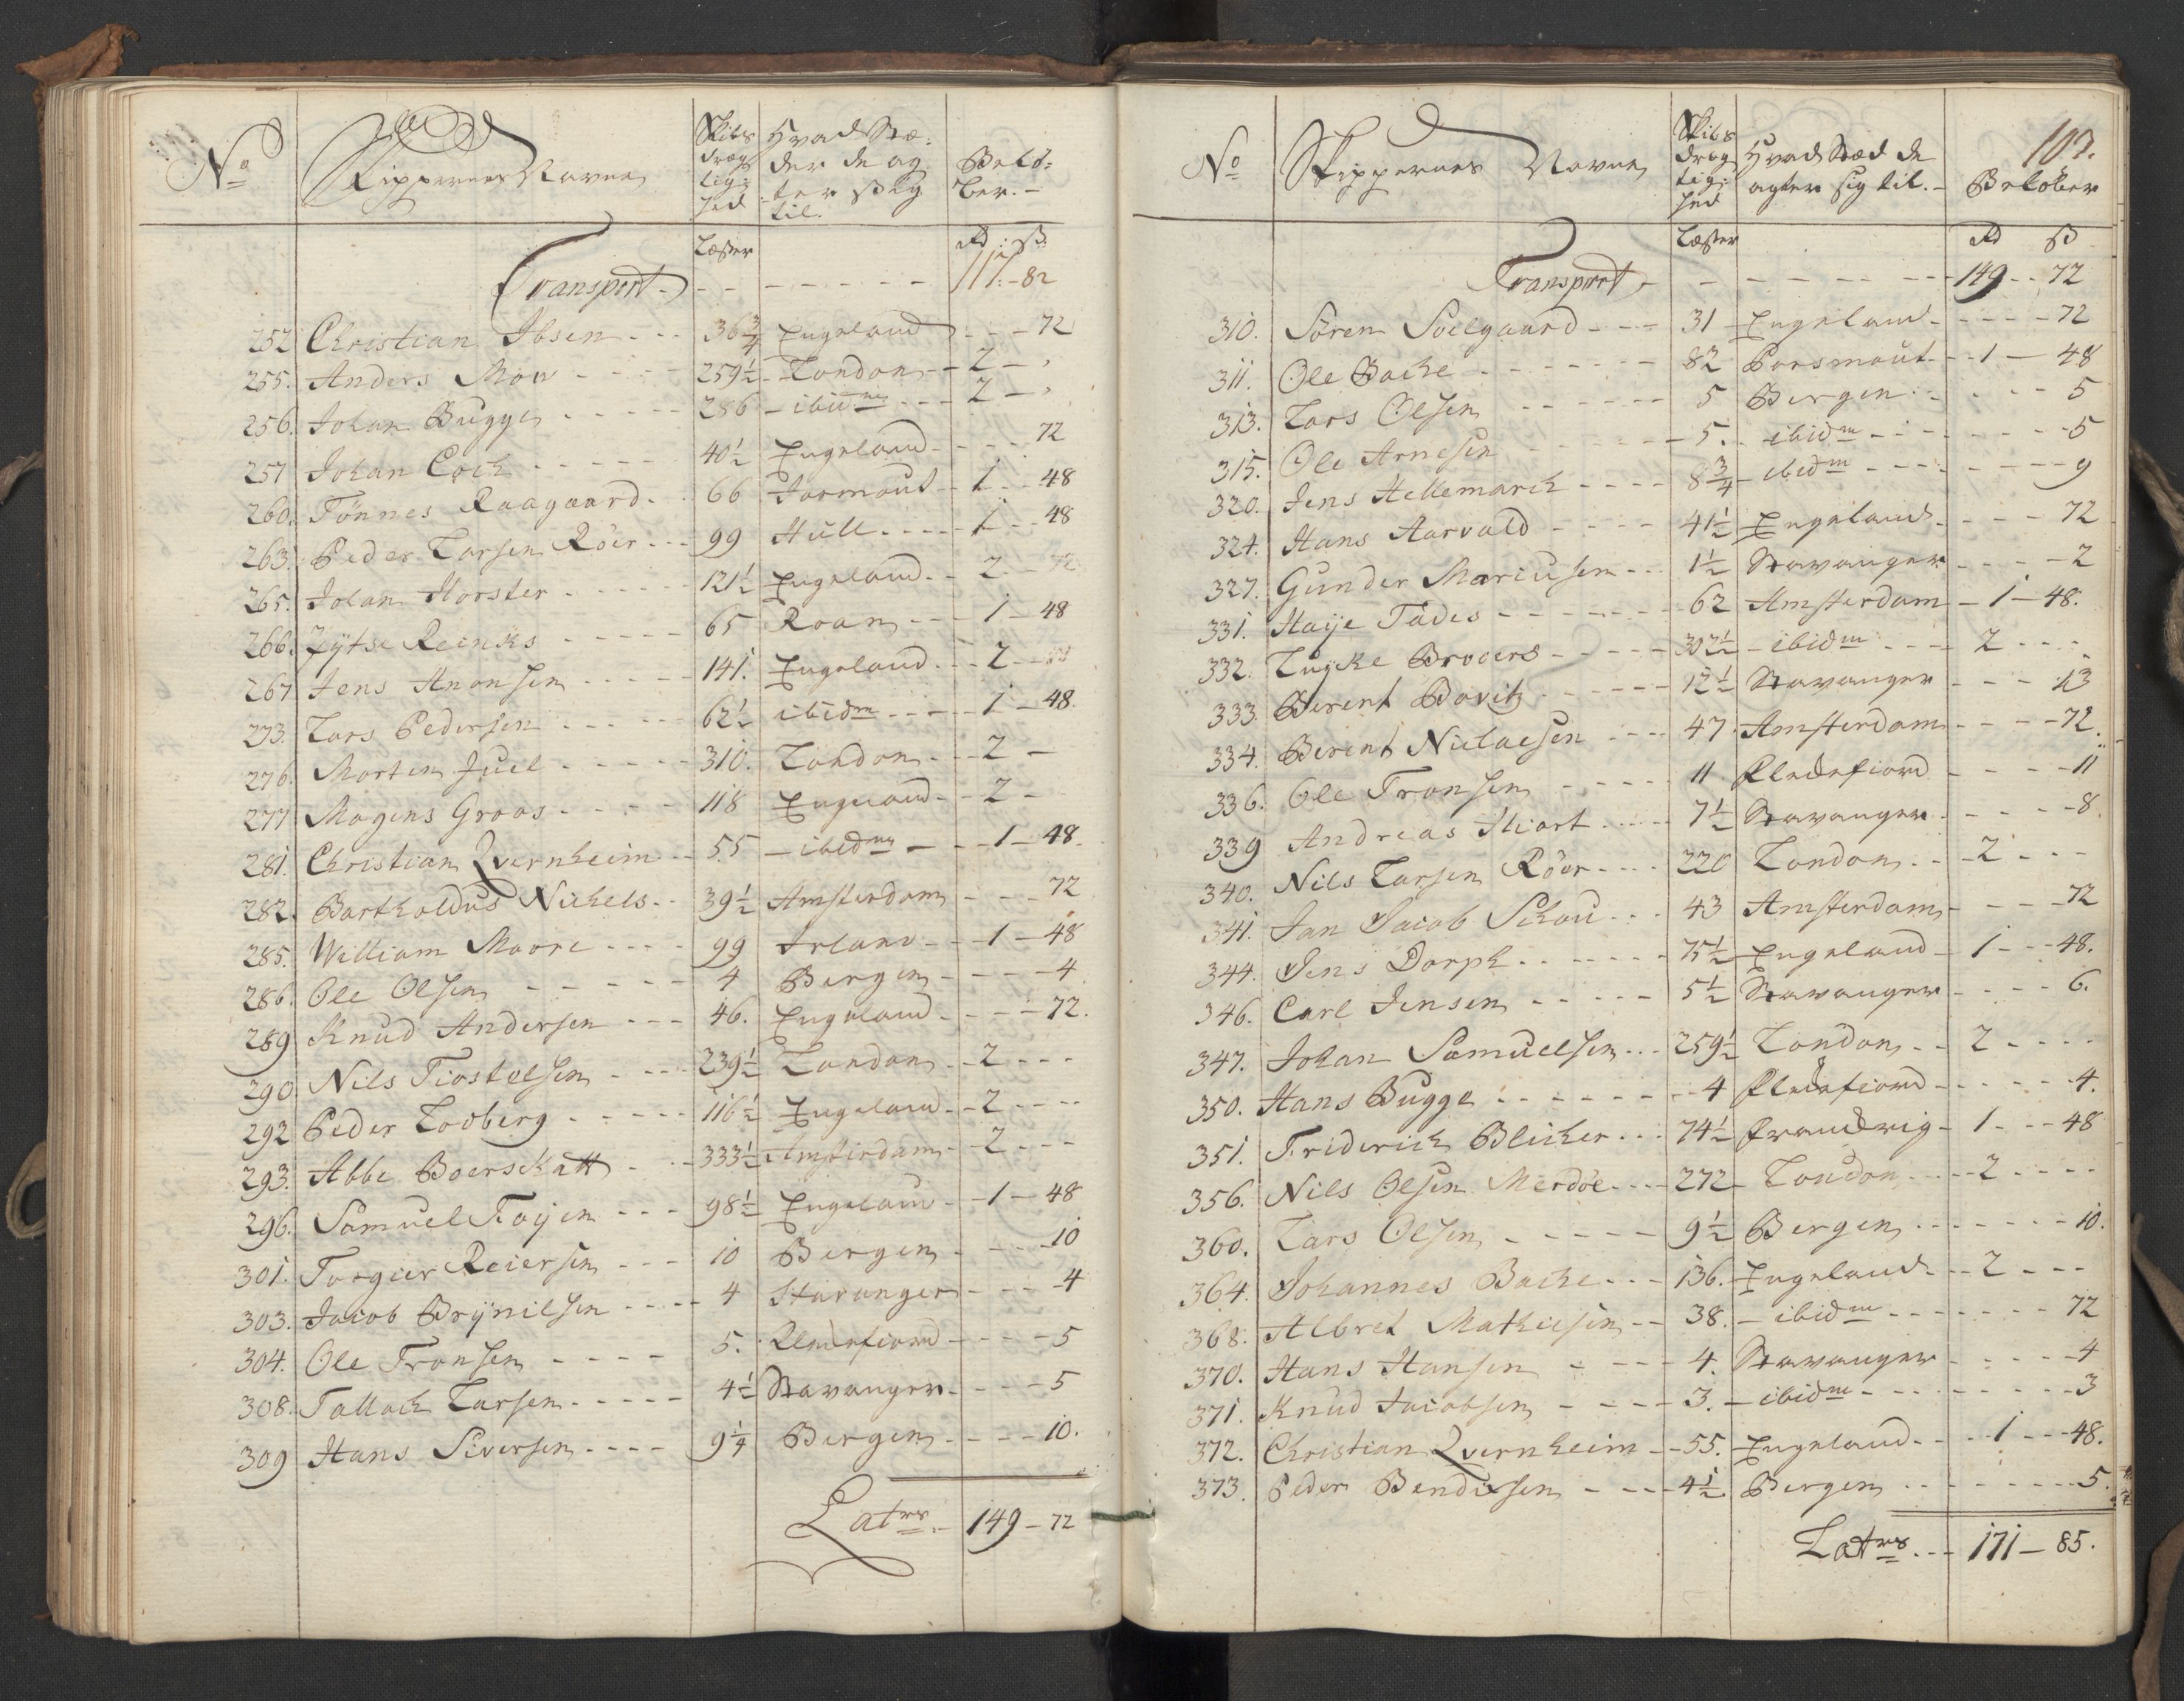 No Skippernes Navne Skibs Drægtighed Hvad Stæder de agter sig til. Beløber.
Læster Rd ß
Transport - - - - - 111 - 82
252 Christian Ibsen - - - 36 3/4 Engeland - - - 72
255. Anders Mow - - - 259 1/2 London - - 2 -
256. Johan Bugge - - - 286 - ibidm - - - 2 -
257 Johan Coch - - - 40 1/2 Engeland - - - 72
260. Tönnes Raagaard - 66 Jarmout - 1 - 48
263. Peder Larsen Röer - - - 99 Hull - - - 1 - - 48
265. Johan Horster - - - 121 1/2 Engeland - - 2 - -
266. Zÿtse Reinks - - - 65 Roan - - - 1 - 48
267 Jens Anonsen - - - 141. Engeland - - 2 - -
273. Lars Pedersen - - - 62 1/2 ibidm - - - 1 - 48.
276. Morten Juel - - - 310. London - - 2 -
277 Mogens Groos - - - 118 Engeland - - 2 -
281. Christian Qvernheim - - 55 - ibidm - - 1 - 48.
282. Bartholdus Nichels - - 39 1/2 Amsterdam - - - 72
285. William Moore - - - 99 Irland - - 1 - 48
286. Ole Olsen - - - 4 Bergen - - - 4
289 Knud Andersen - - - 46. Engeland - - - 72.
290 Nils Tiostelsen - - - 239 1/2 London - - 2 - - -
292 Peder Lodberg - - - 116 1/2 Engeland - - 2 - - -
293. Abbe Boerskatt - - - 333 1/2 Amsterdam - 2 - - -
296. Samuel Foÿen - - - 98 1/2 Engeland - - 1 - 48
301. Torgier Reiersen - - - 10 Bergen - - - 10
303. Jacob Brÿnilsen - - - 4 Stavanger - - - 4
304. Ole Tronsen - - - 5. Fledefiord - - - 5
308. Tallach Larsen - - - 4 1/2 Stavanger - - - 5
309 Hans Siversen - - - 9 1/4 Bergen - - - 10.
Latus - 149 - 72
103.
No Skippernes Navne Skibs Drægtighed Hvad Stæd de agter sig til. - Beløber
Læster Rd ß
Transport - - - - - 149 - - 72
310. Sören Soelgaard - - - 31 Engeland - - - 72
311. Ole Bache - - - 82 Porsmout - - 1 - 48
313. Lars Olsen - - - 5 Bergen - - - 5
315. Ole Arnesen - - - 5. ibidm - - - 5
320. Jens Hellemarch - - - 8 3/4 ibidm - - - 9
324. Hans Aarvold - - - 41 1/2 Engeland - - - 72
327. Gunder Mariusen - - - 1 1/2 Stavanger - - - 2
331. Haÿe Tades - - - 62 Amsterdam - 1 - 48.
332. Luÿke Broders - - - 302 1/2 - ibidm - - - 2 - - -
333. Berent Bovitz - - - 12 1/2 Stavanger - - - 13
334. Berent Niclaesen - - - 47 Amsterdam - - - 72.
336. Ole Tronsen - - - 11 Fledefiord - - - 11
339 Andreas Hiort - - - 7 1/2 Stavanger - - - 8.
340. Nils Larsen Röer - - - 220 London - - 2 - - -
341. Jan Jacob Schou - - - 43 Amsterdam - - - 72
344. Jens Dorph - - - 75 1/2 Engeland - 1 - - 48.
346. Carl Jensen - - - 5 1/2 Stavanger - - - 6.
347. Johan Samuelsen - - - 259 1/2 London - - 2 - - -
350. Hans Bugge - - - 4 Fledefiord - - - 4.
351. Friderich Blicher - - - 74 1/2 Franckrig - 1 - - 48
356. Nils Olsen Merdöe - - - 272 London - - 2 - - -
360. Lars Olsen - - - 9 1/2 Bergen - - - 10.
364. Johannes Bache - - - 136. Engeland - - 2 - - -
368. Albret Mathiesen - - 38. - ibidm - - - 72
370. Hans Hansen - - - 4. Stavanger - - - 4
371. Knud Jacobsen - - - 3. - ibidm - - - 3
372. Christian Qvernheim - - 55. Engeland - - 1 - - 48.
373. Peder Bendixsen - - - 4 1/2 Bergen - - - 5.
Latus - - - 171 - 85.